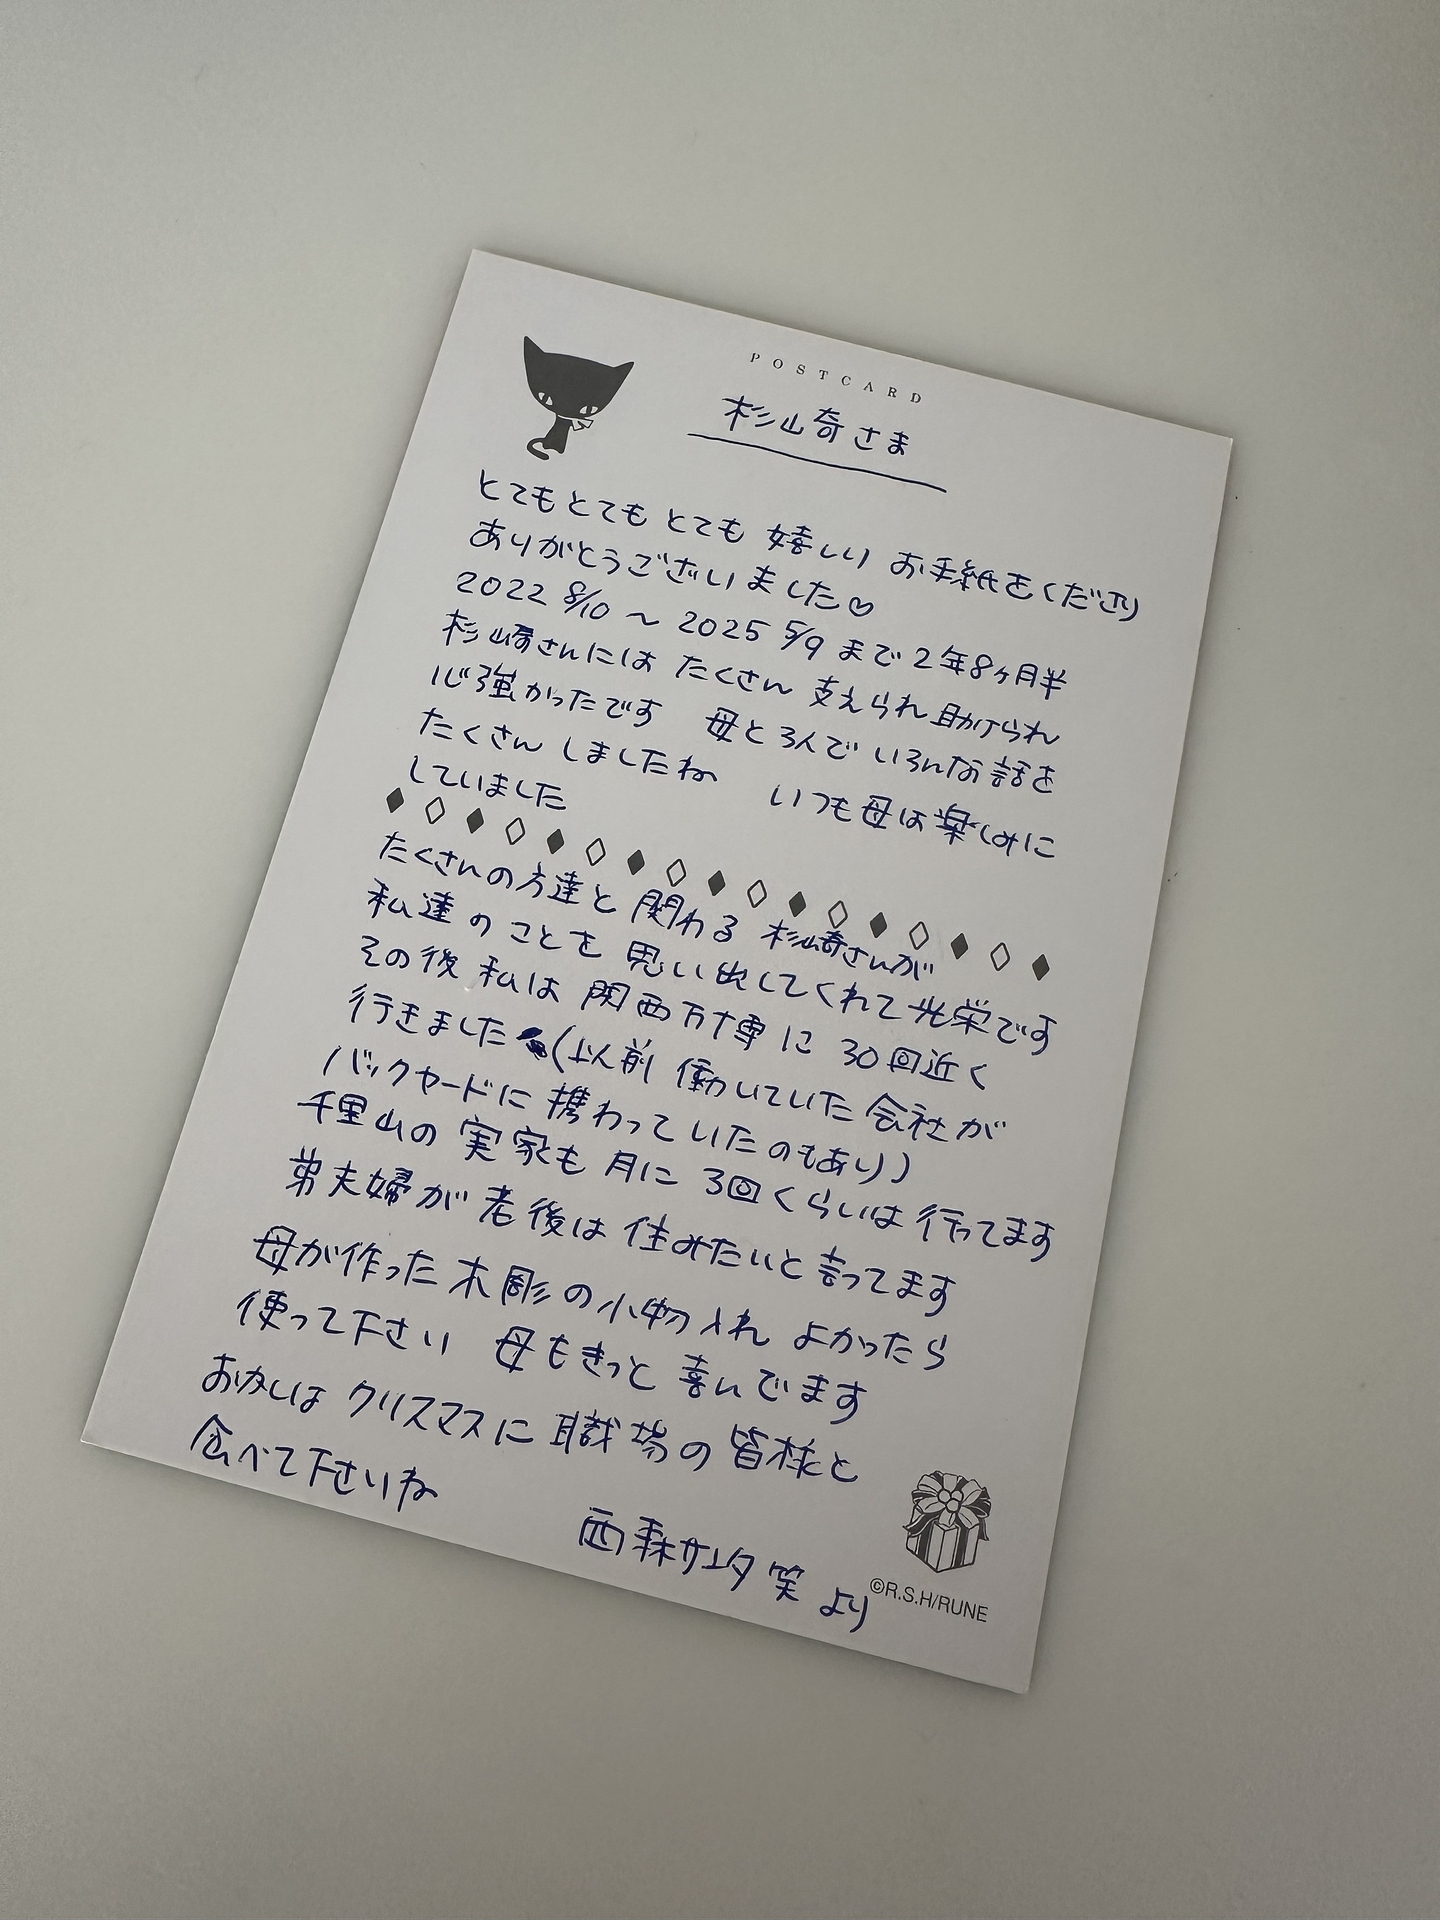 POSTCARD
杉山奇さま
とてもとてもとても 嬉しい お手紙をくださり
ありがとうございました♡
2022 8/10 〜 2025 5/9 まで 2年8ヶ月半
杉崎さんには たくさん 支えられ 助けられ
心強かったです 母と3人で いろんな話を
たくさん しましたね いつも母は楽しみに
していました
たくさんの方達と 関わる 杉崎さんが
私達のことを 思い出してくれて光栄です
その後 私は 関西万博に 30回近く
行きました (以前 働いていた会社が
バックヤードに 携わっていたのもあり)
千里山の 実家も 月に 3回くらいは 行ってます
弟夫婦が 老後は 住みたいと言ってます
母が作った 木彫の小物入れ よかったら
使って下さい 母もきっと 喜んでます
おかしは クリスマスに 職場の皆様と
食べて下さいね
西森サンタ 笑 より
©R.S.H/RUNE